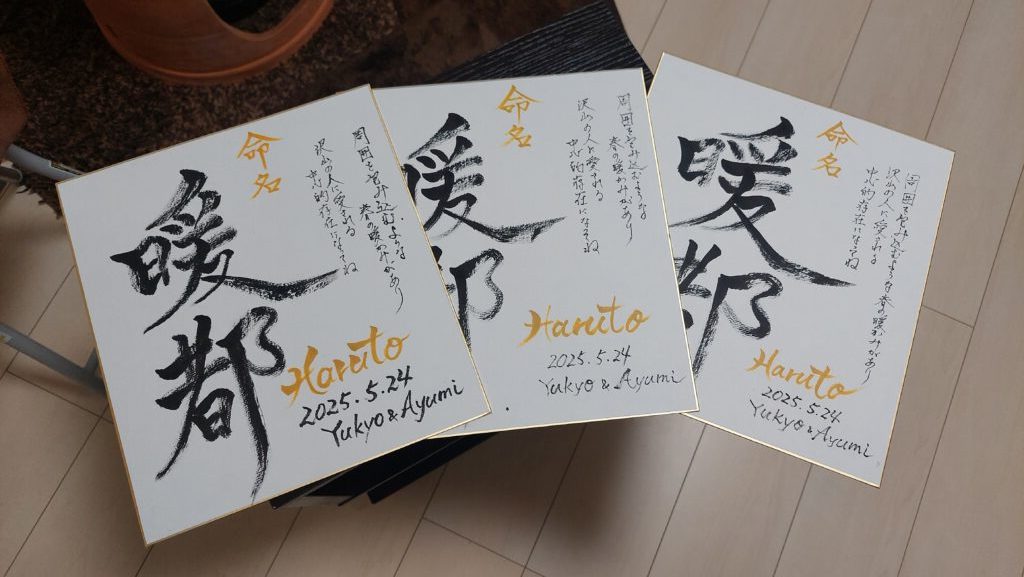 命名
暖都
周囲を包み込むような
春の暖かみがあり
沢山の人に愛される
中心的存在になってね
Haruto
2025.5.24
Yukyo & Ayumi
命名
暖都
周囲を包み込むような
春の暖かみがあり
沢山の人に愛される
中心的存在になってね
Haruto
2025.5.24
Yukyo & Ayumi
命名
暖都
周囲を包み込むような春の暖かみがあり
沢山の人に愛される
中心的存在になってね
Haruto
2025.5.24
Yukyo & Ayumi